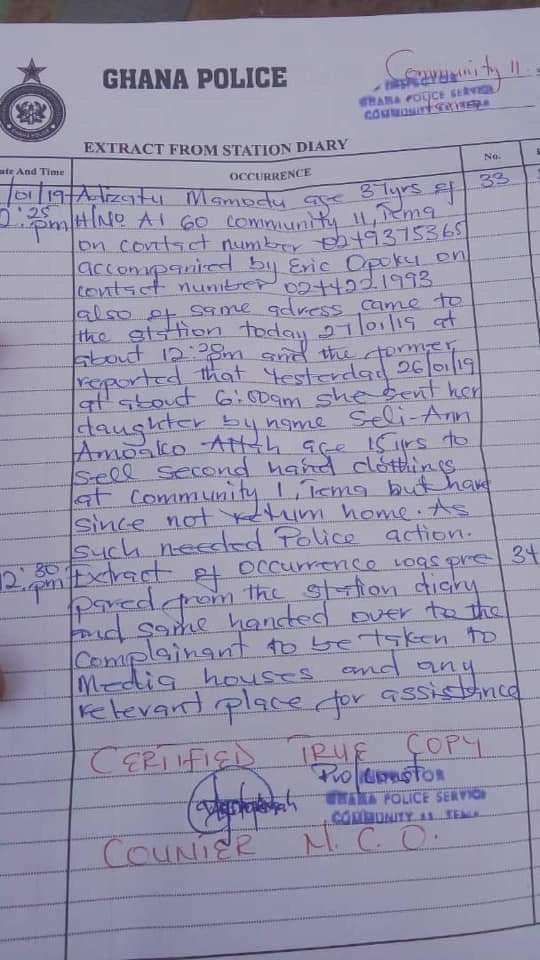 GHANA POLICE
Community 11
INSPECTOR
GHANA POLICE SERVICE
COMMUNITY
EXTRACT FROM STATION DIARY
ate And Time
OCCURRENCE
No.
/01/19 Adizatu Mamodu age 37yrs of 33
2:25 pm H/No A1 60 community 11, Tema
on contact number 0249375365
accompanied by Eric Opoku on
contact number 024422.1993
also of same adress came to
the station today 27/01/19 at
about 12:20pm and the former
reported that Yesterday 26/01/19
at about 6:00am she sent her
daughter by name Seli-Ann
Amoako Attah age 15yrs to
sell second hand clothings
at community 1, Tema but have
since not return home. As
such needed Police action.
12:30 pm Extract of occurrence was pre 34
pared from the station diary
and same handed over to the
Complainant to be taken to
Media houses and any
relevant place for assistance
CERTIFIED TRUE COPY
GHANA POLICE SERVICE
COMMUNITY 11 TEMA
COUNTER N. C. O.